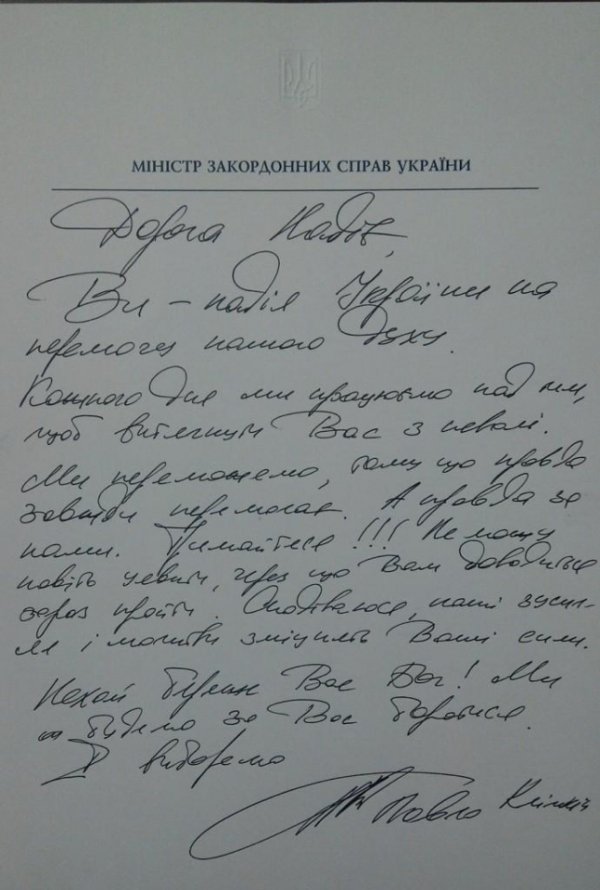 МІНІСТР ЗАКОРДОННИХ СПРАВ УКРАЇНИ
Дорога Надія,
Ви – надія України на
перемогу нашого духу.
Кожного дня ми працюємо над тим,
щоб витягнути Вас з неволі.
Ми переможемо, тому що правда
завжди перемагає. А правда за
нами. Тримайтеся!!! Не можу
навіть уявити, через що Вам доводиться
зараз пройти. Сподіваюся, наші зусил-
ля і молитви зміцнять Ваші сили.
Нехай береже Вас Бог! Ми
будемо за Вас боротися.
І виборемо
Павло Клімкін